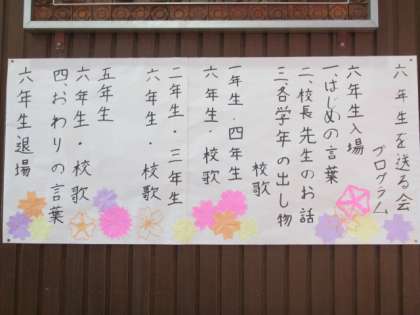 六年生を送る会
プログラム
六年生入場
一、はじめの言葉
二、校長先生のお話
三、各学年の出し物
校歌
一年生・四年生
六年生・校歌
二年生・三年生
六年生・校歌
五年生
六年生・校歌
四、おわりの言葉
六年生退場